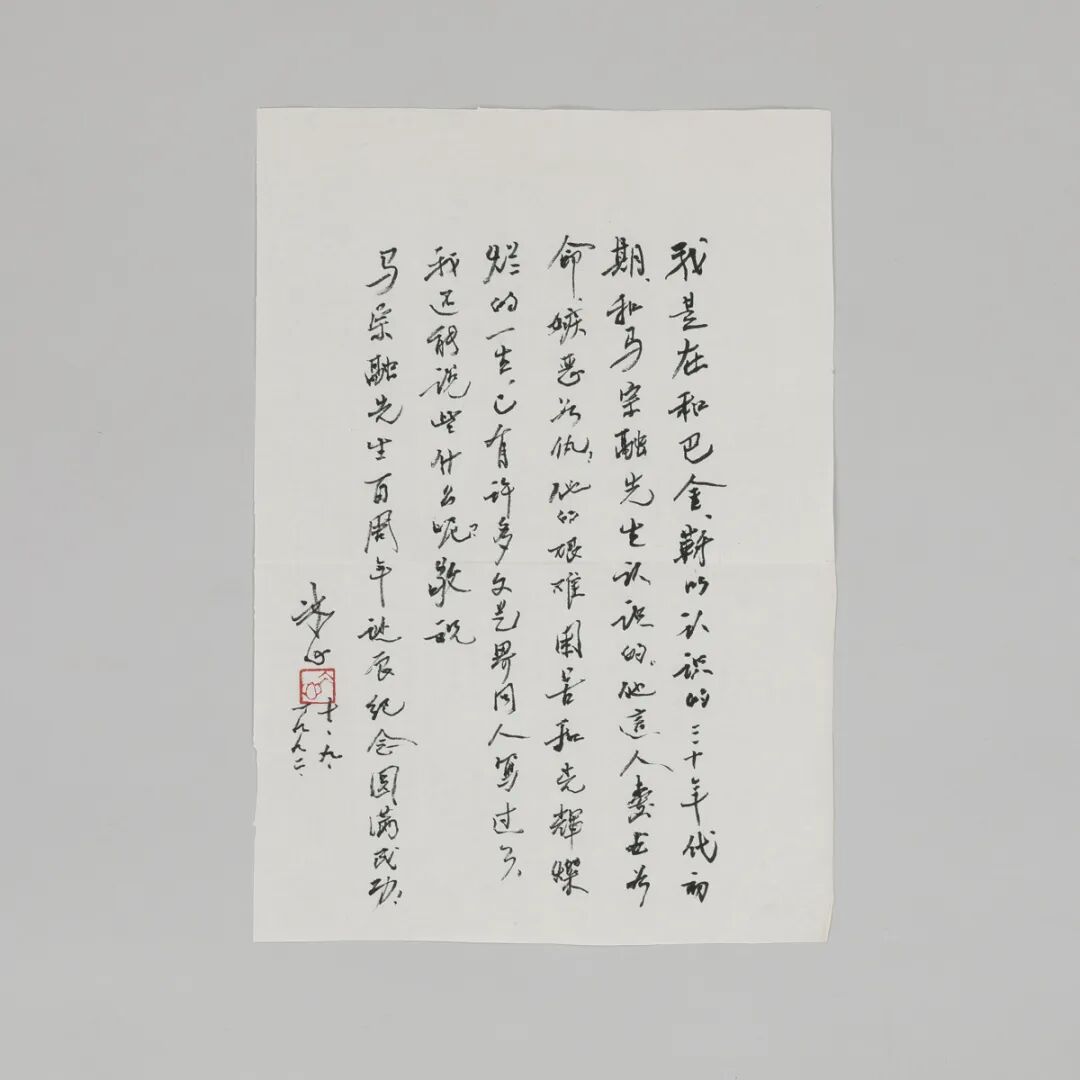 我是在和巴金、靳以认识的三十年代初
期、和马宗融先生认识的。他这人爱书如
命、嫉恶如仇；他的艰难困苦和光辉灿
烂的一生、已有许多文艺界同人写过了、
我还能说些什么呢？敬祝
马宗融先生百周年诞辰纪念圆满成功。
冰心
十、九、
一九九二、